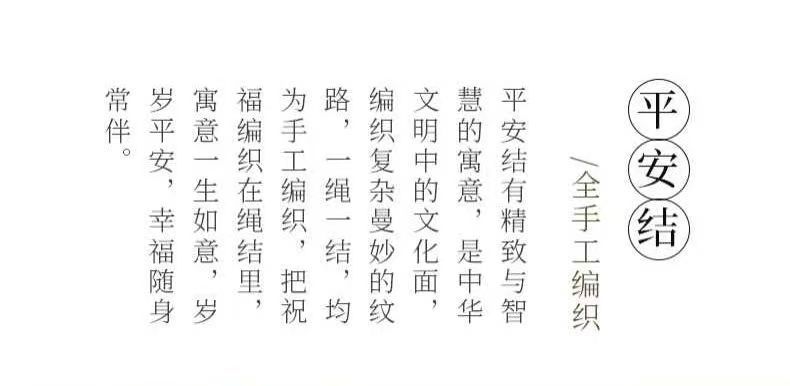 平安结
/全手工编织
平安结有精致与智
慧的寓意，是中华
文明中的文化面，
编织复杂曼妙的纹
路，一绳一结，均
为手工编织，把祝
福编织在绳结里，
寓意一生如意，岁
岁平安，幸福随身
常伴。